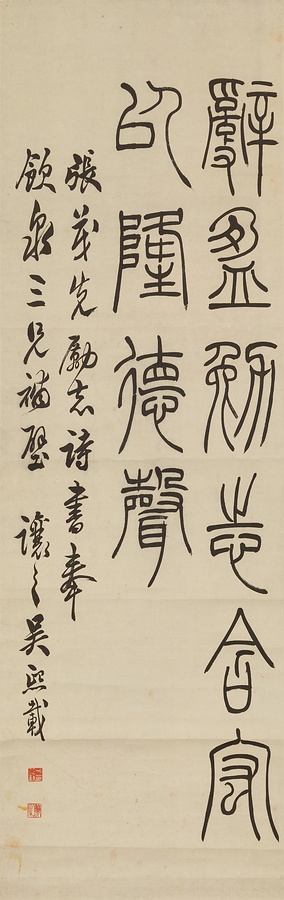 辭盈勉志含宏
以隆德聲
張茂先勵志詩書奉
飲泉三兄補壁 讓之吳熙載